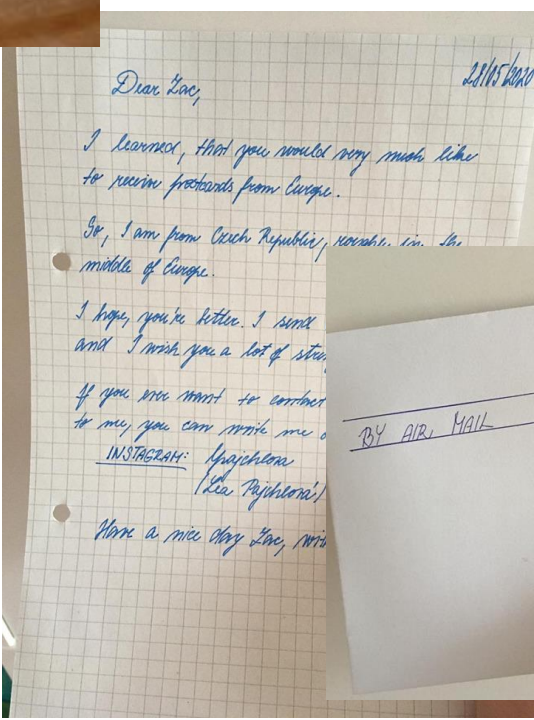 28/05/2020
Dear Zac,
I learned, that you would very much like
to receive postcards from Europe.
So, I am from Czech Republic, in the
middle of Europe.
I hope, you're better. I send
and I wish you a lot of
If you ever want to contact
to me, you can write me
INSTAGRAM: lpajchlova
(Lea Pajchlová)
Have a nice day Zac,
BY AIR MAIL